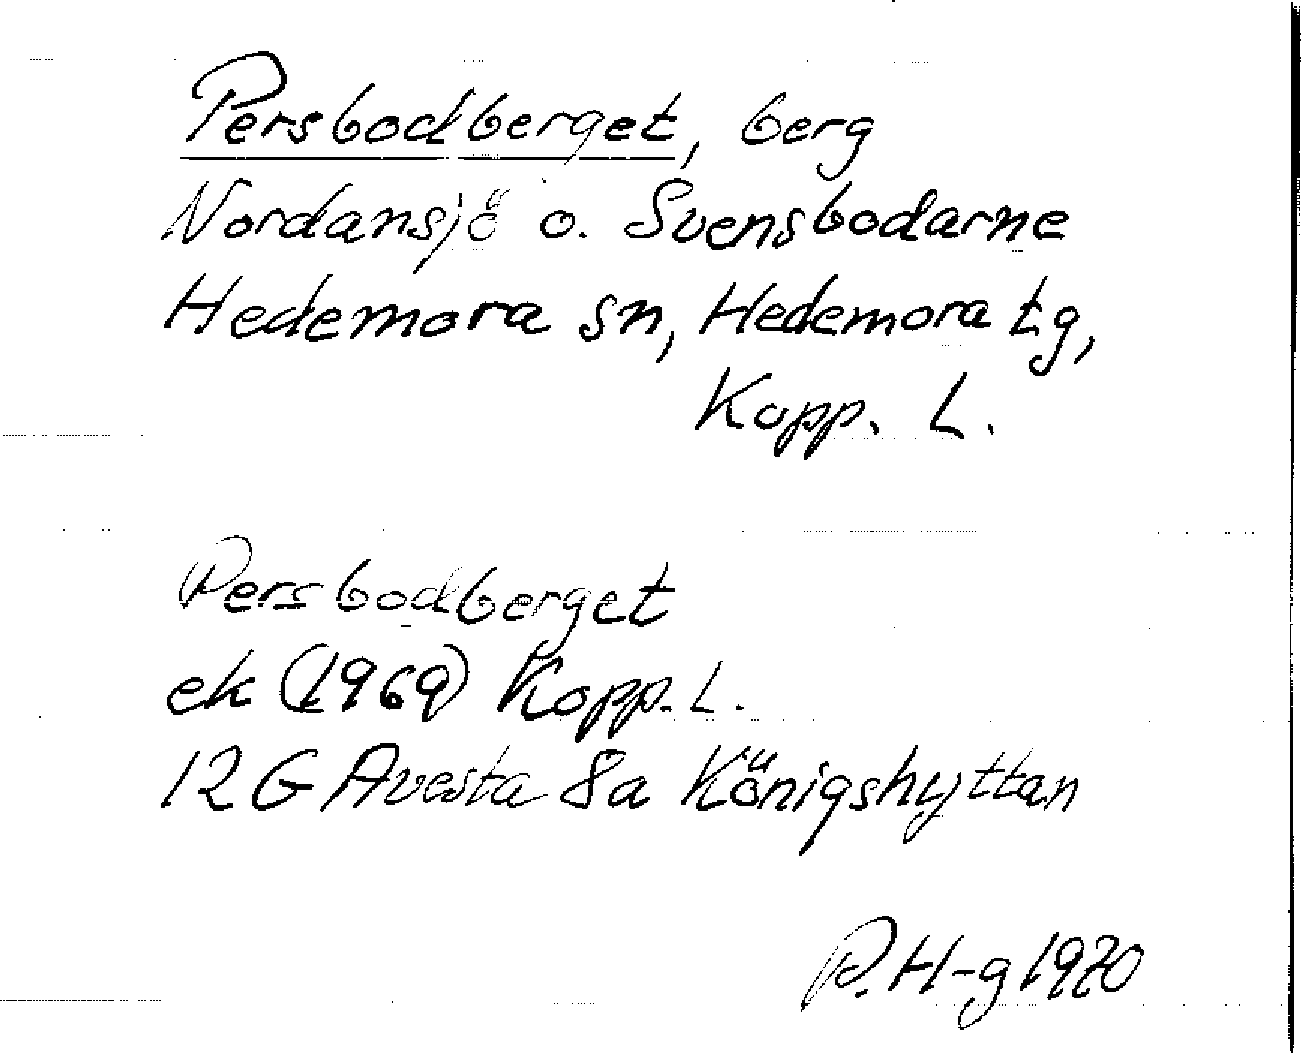 Persbodberget, berg
Nordansjö o. Svensbodarne
Hedemora sn, Hedemora tg,
Kopp. L.
Persbodberget
ek (1969) Kopp. L.
12 G Avesta 8a Königshyttan
P. H-g 1970